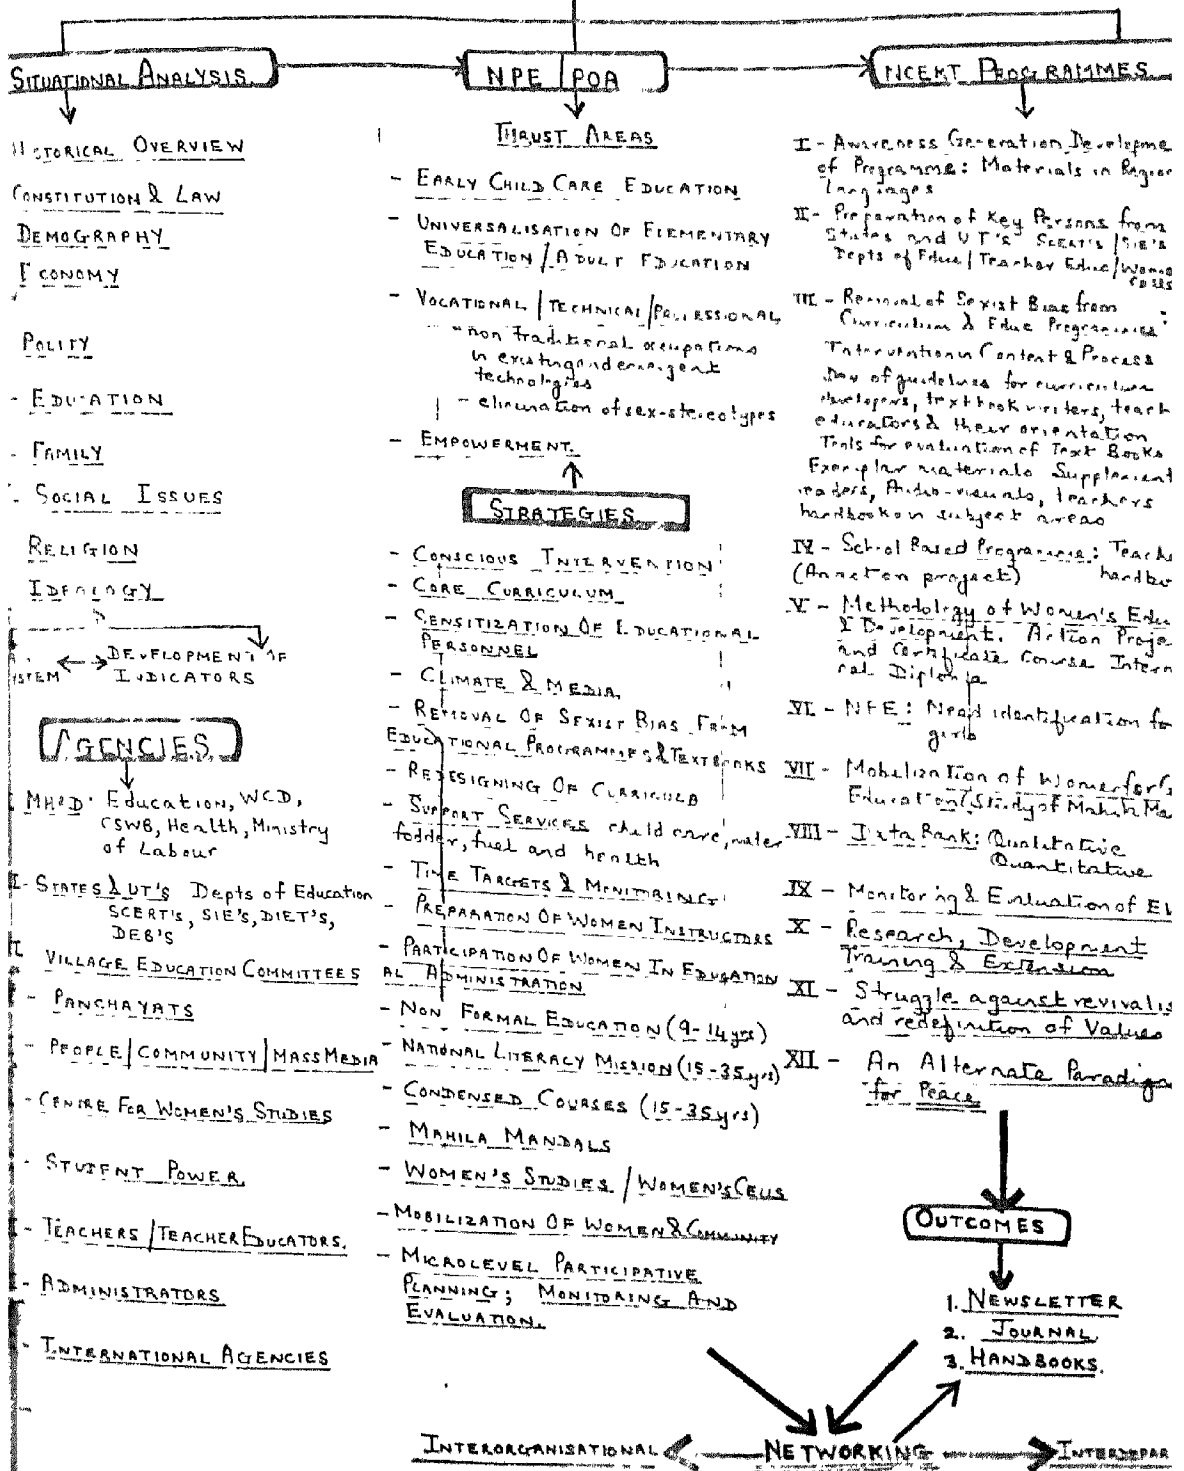 SITUATIONAL ANALYSIS
HISTORICAL OVERVIEW
CONSTITUTION & LAW
DEMOGRAPHY
ECONOMY
POLITY
- EDUCATION
- FAMILY
- SOCIAL ISSUES
RELIGION
IDEOLOGY
DEVELOPMENT OF
INDICATORS
AGENCIES
MHRD: Education, WCD,
CSWB, Health, Ministry
of Labour
- STATES & UT'S Depts of Education
SCERT'S, SIE'S, DIET'S,
DEB'S
VILLAGE EDUCATION COMMITTEES
- PANCHAYATS
- PEOPLE/COMMUNITY/MASS MEDIA
- CENTRE FOR WOMEN'S STUDIES
- STUDENT POWER
- TEACHERS/TEACHER EDUCATORS.
- ADMINISTRATORS
- INTERNATIONAL AGENCIES
NPE/POA
THRUST AREAS
- EARLY CHILD CARE EDUCATION
- UNIVERSALISATION OF ELEMENTARY
EDUCATION/ADULT EDUCATION
- VOCATIONAL/TECHNICAL/PROFESSIONAL
- non traditional occupations
in existing and emergent
technologies
- elimination of sex-stereotypes
- EMPOWERMENT.
STRATEGIES
- CONSCIOUS INTERVENTION
- CORE CURRICULUM
- SENSITIZATION OF EDUCATIONAL
PERSONNEL
- CLIMATE & MEDIA
- REMOVAL OF SEXIST BIAS FROM
EDUCATIONAL PROGRAMMES & TEXTBOOKS
- REDESIGNING OF CURRICULA
- SUPPORT SERVICES child care, water
fodder, fuel and health
- TIME TARGETS & MONITORING
- PREPARATION OF WOMEN INSTRUCTORS
- PARTICIPATION OF WOMEN IN EDUCATION
AL ADMINISTRATION
- NON FORMAL EDUCATION (9-14 yrs)
- NATIONAL LITERACY MISSION (15-35 yrs)
- CONDENSED COURSES (15-35 yrs)
- MAHILA MANDALS
- WOMEN'S STUDIES/WOMEN'S CELLS
- MOBILIZATION OF WOMEN & COMMUNITY
- MICROLEVEL PARTICIPATIVE
PLANNING; MONITORING AND
EVALUATION.
NCERT PROGRAMMES
I - Awareness Generation Developme
of Programme: Materials in Region
languages
II - Preparation of Key Persons from
States and UT'S SCERT'S/SIE'S
Depts of Educ/Teacher Educ/Women
III - Removal of Sexist Bias from
Curriculum & Educ Programmes:
Intervention in Content & Process
Dev of guidelines for curriculum
developers, textbook writers, teach
educators & their orientation
Tools for evaluation of Text Books
Exemplar materials Supplement
readers, Audio-visuals, teachers
handbook on subject areas
IV - School Based Programme: Teache
(Annetton project) handbo
V - Methodology of Women's Edu
& Development. Action Proje
and Certificate Course Intern
nal Diploma
VI - NFE: Need identification fo
girls
VII - Mobelization of Women for
Education (Study of Mahila Ma
VIII - Data Bank: Qualitative
Quantitative
IX - Monitoring & Evaluation of
X - Research, Development
Training & Extension
XI - Struggle against revivalis
and redefinition of Values
XII - An Alternate Paradigm
for Peace
OUTCOMES
1. NEWSLETTER
2. JOURNAL
3. HANDBOOKS.
INTERORGANISATIONAL NETWORKING INTERDEPAR